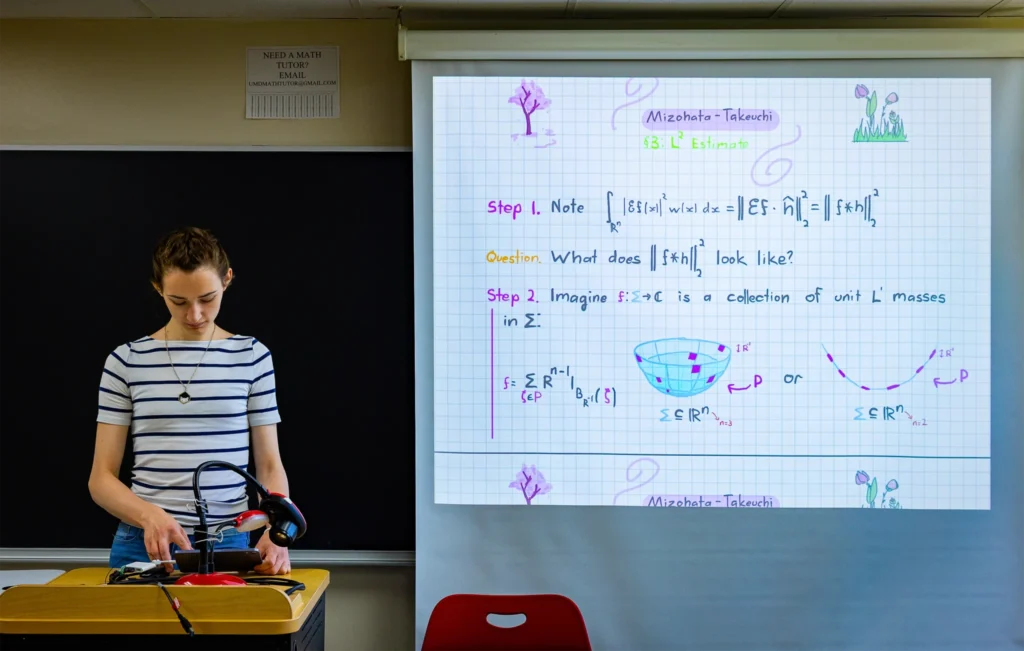 NEED A MATH
TUTOR?
EMAIL
UMDMATHTUTOR@GMAIL.COM
Mizohata - Takeuchi
§3. L² Estimate
Step 1. Note ∫_{ℝⁿ} |Ef(x)|² w(x) dx = ‖Ef · ĥ‖₂² = ‖f*h‖₂²
Question. What does ‖f*h‖₂² look like?
Step 2. Imagine f: Σ→ℂ is a collection of unit L¹ masses
in Σ:
f = Σ_{ζ∈P} R^{n-1} 1_{B_{R⁻¹}(ζ)}
I R⁻¹
P
or
I R⁻¹
P
Σ ⊆ ℝⁿ n=3
Σ ⊆ ℝⁿ n=2
Mizohata - Takeuchi